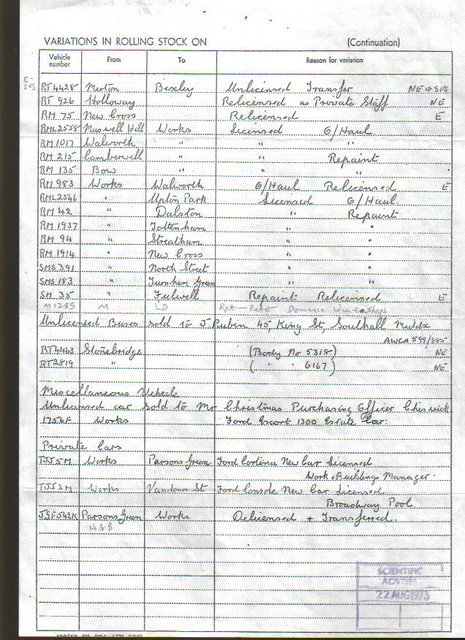 VARIATIONS IN ROLLING STOCK ON (Continuation)
Vehicle number From To Reason for variation
RT 4428 Merton Bexley Unlicensed Transfer
RT 926 Holloway Relicensed as Private Staff NE
RM 75 New Cross Relicensed E
RML 2558 Muswell Hill Works Licensed O/Haul
RM 1017 Walworth " " "
RM 215 Camberwell " " Repaint
RM 135 Bow " " "
RM 983 Works Walworth O/Haul Relicensed E
RML 2546 " Upton Park Licensed O/Haul
RM 42 " Dalston " Repaint
RM 1937 " Tottenham " "
RM 94 " Streatham " "
RM 1914 " New Cross " "
SMS 391 " North Street " "
SMS 183 " Turnham Green " "
SM 35 " Fulwell Repaint Relicensed E
M 1285 M LD
Unlicensed Buses sold to J Rubin 45, King St, Southall Middx
AWCA 599/
RT 4463 Stonebridge (Body No 5318) NE
RT 2819 " ( " " 6167) NE
Miscellaneous Vehicle
Unlicensed car sold to Mr Christmas Purchasing Officer Chiswick
1756F Works Ford Escort 1300 Estate Car
Private Cars
Works Parsons Green Ford Cortina New Car Licensed
Works & Buildings Manager
Works Vandon St Ford Consul New Car Licensed
Broadway Pool
Parsons Green Works Delicensed + Transferred.
SCIENTIFIC
ADVISER
22 AUG 1973